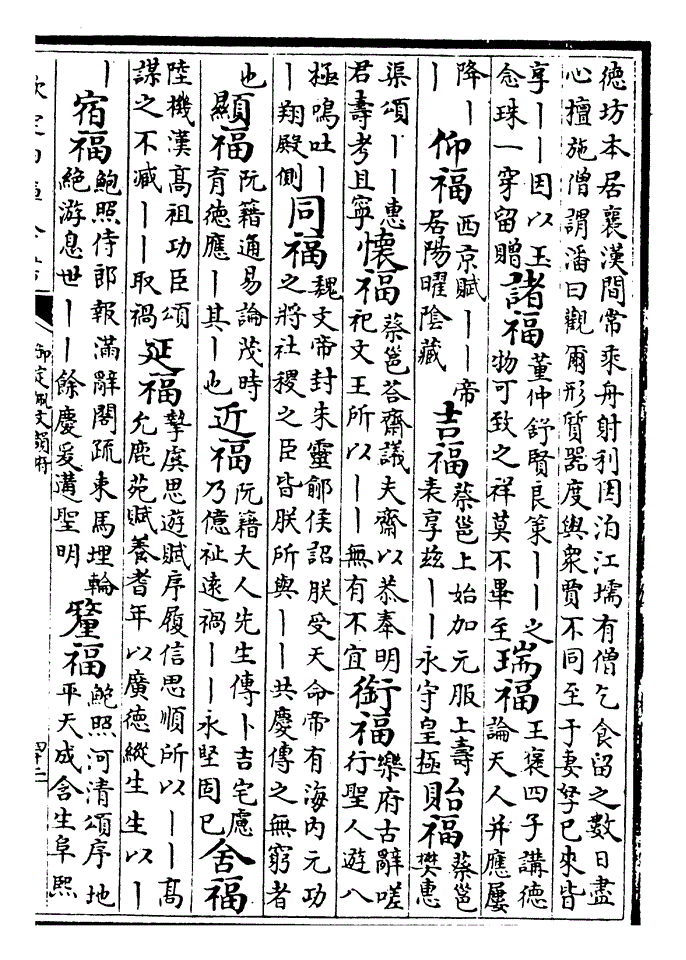 德坊本居襄漢間常乘舟射利因泊江壖有僧乞食留之數日盡
心擅施僧謂潘曰觀爾形質器度與衆賈不同至于妻孥已來皆
享丨丨因以玉
念珠一穿留贈
諸福
董仲舒賢良策丨丨之
物可致之祥莫不畢至
瑞福
王褒四子講德
論天人并應屢
降丨
丨
仰福
西京賦丨丨帝
居陽曜陰藏
吉福
蔡邕上始加元服上壽
表享玆丨丨永守皇極
貽福
蔡邕
樊惠
渠頌丨丨惠
君壽考且寧
懷福
蔡邕荅齋議夫齋以恭奉明
祀文王所以丨丨無有不宜
銜福
樂府古辭嗟
行聖人遊八
極鳴吐丨
丨翔殿側
同福
魏文帝封朱靈鄃侯詔朕受天命帝有海内元功
之將社稷之臣皆朕所與丨丨共慶傳之無窮者
也
顯福
阮籍通易論茂時
育德應丨其丨也
近福
阮籍大人先生傳卜吉宅慮
乃億祉遠禍丨丨永堅固已
舍福
陸機漢高祖功臣頌
謀之不臧丨丨取禍
延福
摯虞思遊賦序履信思順所以丨丨高
允鹿苑賦養耆年以廣德縱生生以丨
丨
宿福
鮑照侍郎報滿辭閣疏束馬埋輪
絶游息世丨丨餘慶爰溝聖明
釐福
鮑照河清頌序地
平天成含生阜熙
御定佩文韻府
四十二